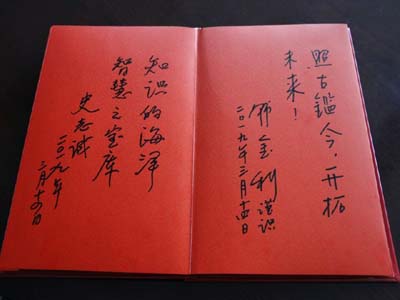 照古鑑今,开拓
未来!
谨识
二〇一九年三月十四日
知识的海洋
智慧之宝库
史志诚
二〇一九年
三月十四日